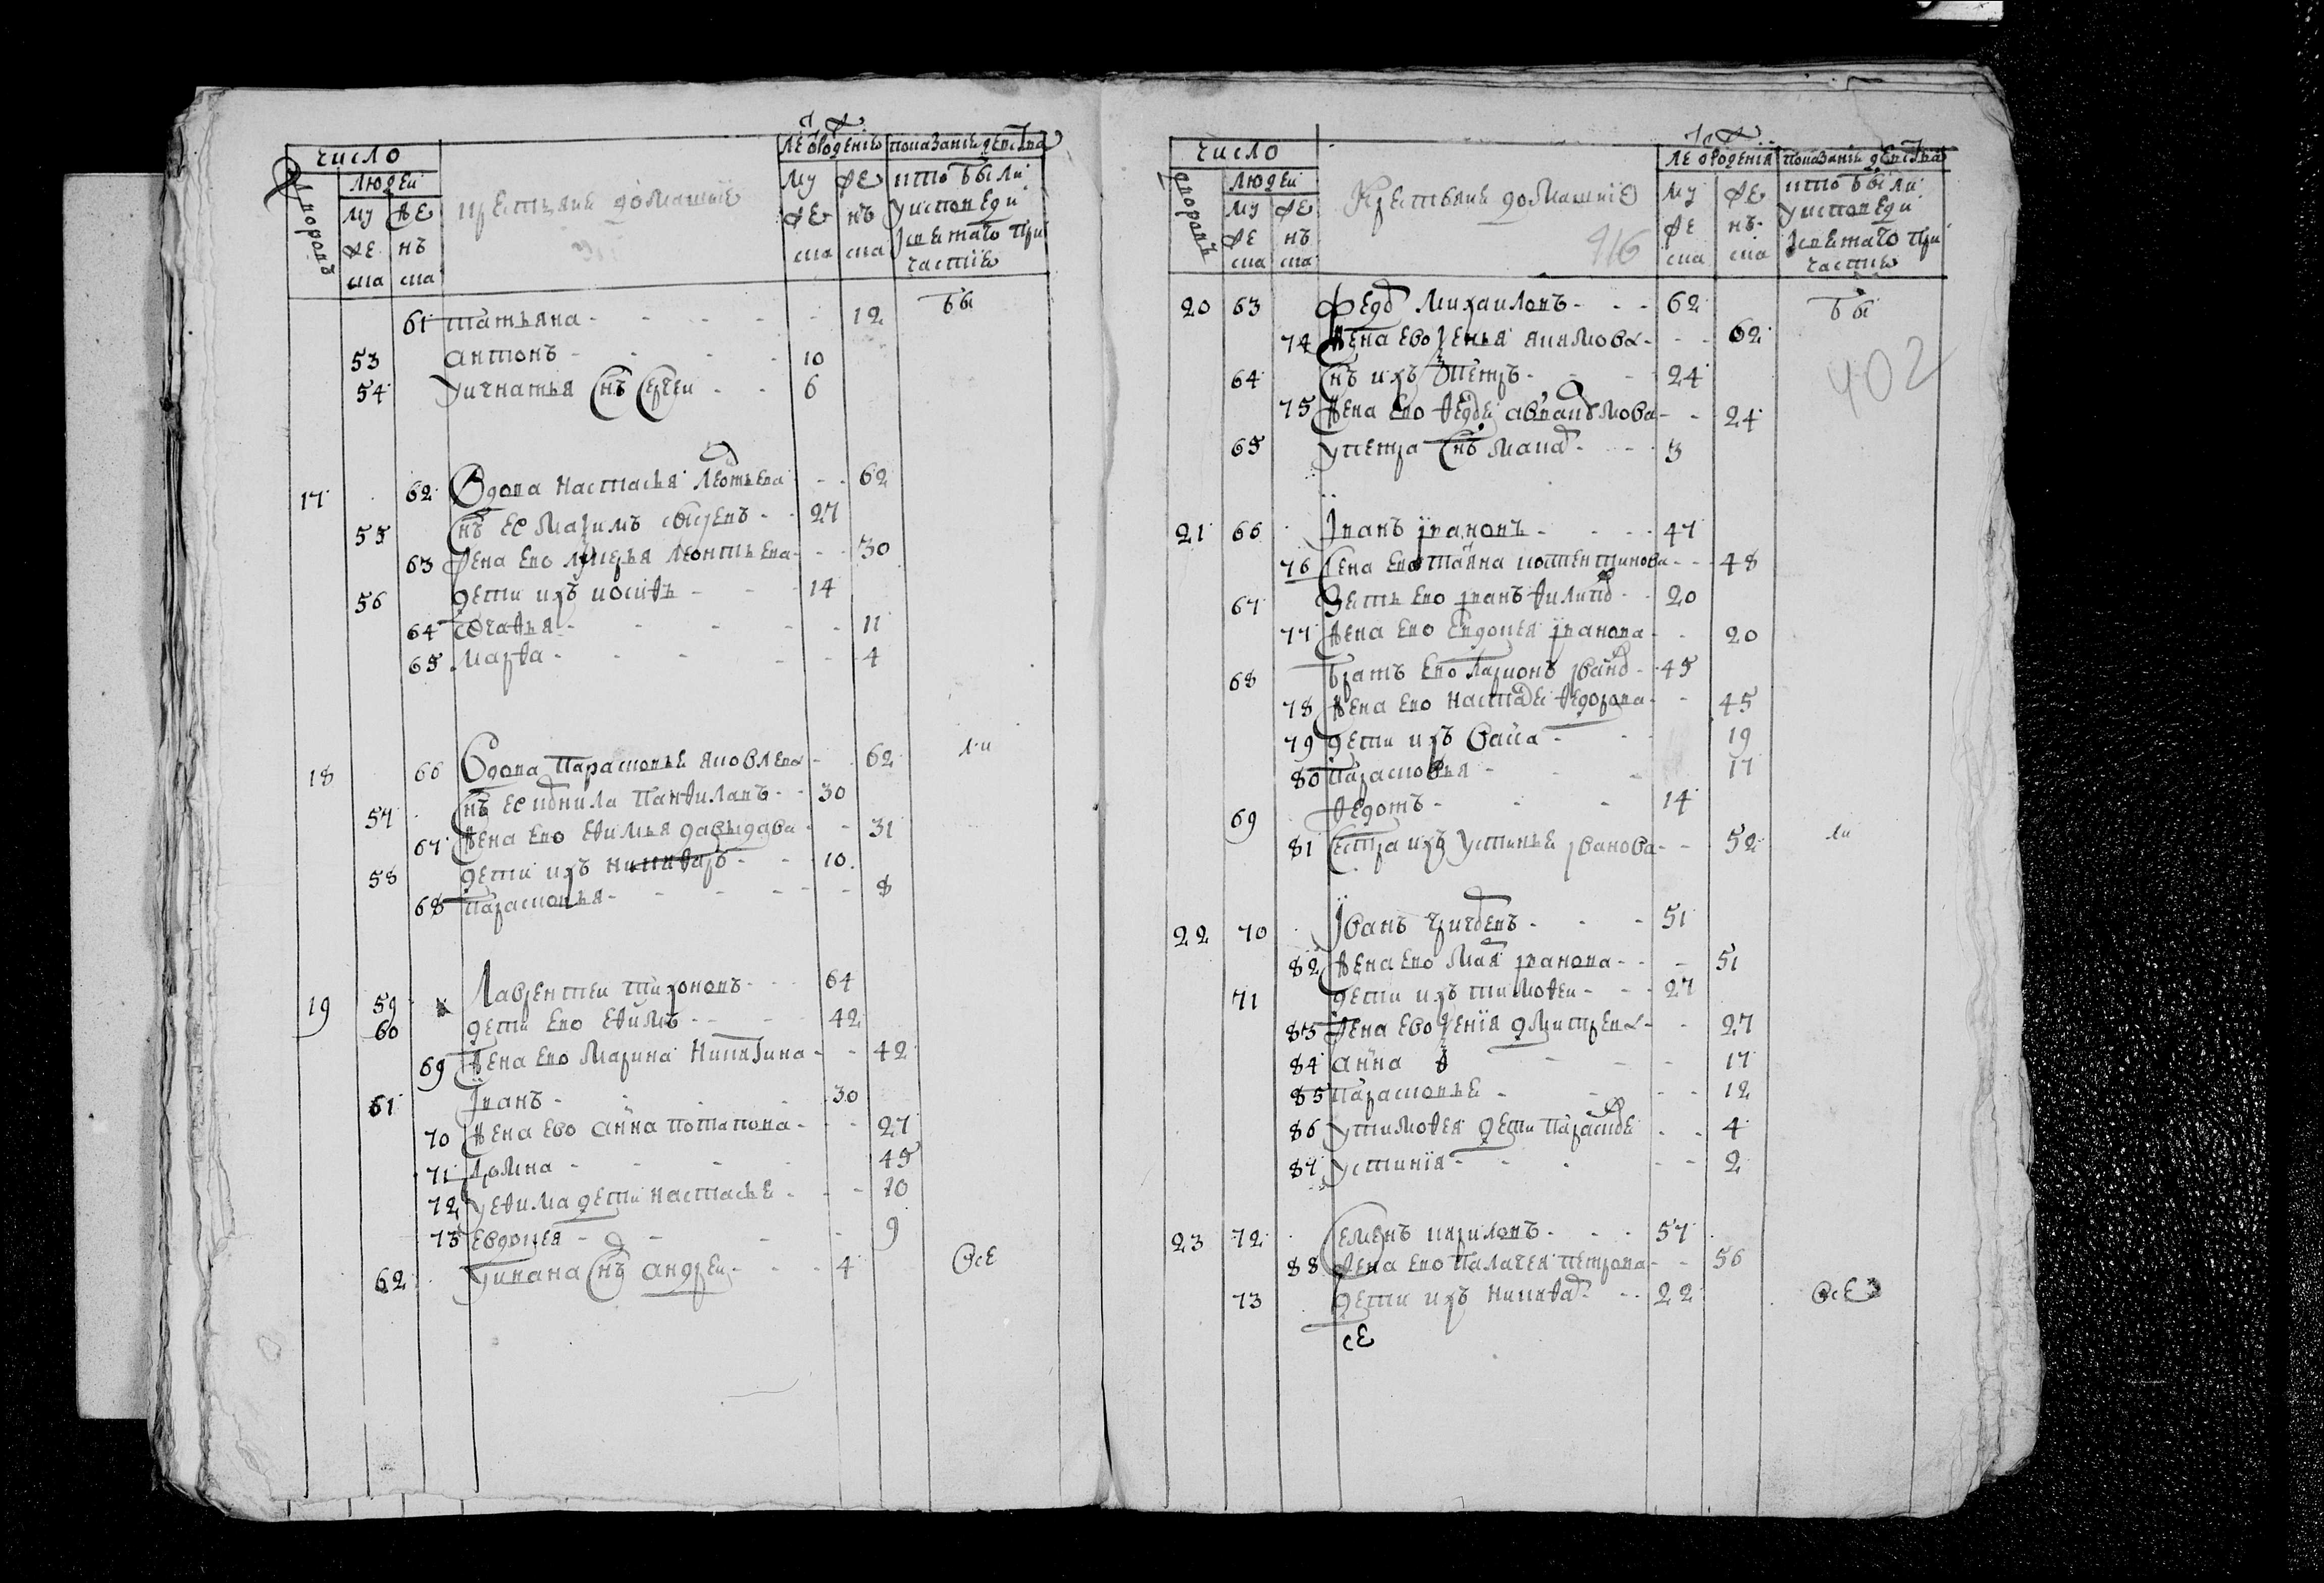 число
людей
дворовъ
му же ска
же нъ ска
крестьяне домашние
Ле ѿ рождение
му же ска
же нъ ска
показание действа
кто были
у исповеди
и святаго при
частие
61 татьяна - 12 бы
53 антонъ - 10
54 у игнатья снъ сергеи - 6
17 62 Вдова настасья леотьева - 62
55 снъ ее маѯимъ - 27
63 жена ево лукерья леонтьева - 30
56 дети ихъ иосифъ - 14
64 агафья - 11
65 марфа - 4
18 66 Вдова парасковье яковлева - 62
57 снъ ее данила панфиловъ - 30
67 жена ево ефимья давыдава - 31
58 дети ихъ никифоръ - 10
68 парасковья - 8
19 59 Лаврентеи тихоновъ - 64
60 дети ево ефимъ - 42
69 жена ево марина никитина - 42
61 Iванъ - 30
70 жена ево анна потапова - 27
71 домна - 45
72 у ефима дети настасье - 10
73 евдокея - 9
62 у ивана снъ андреи - 4 все
число
людеи
дворовъ
му же ска
же нъ ска
Крестьяне домашние
416
Ле ѿ рождения
му же ска
же нъ ска
показание действа
кто были
у исповеди
и святаго при
частие
20 63 Федо михаиловъ - 62 бы
74 жена ево ѯенья якимова - 62
402
64 снъ ихъ петръ - 24
75 жена ево - 24
65 у петра снъ - 3
21 66 Iванъ ивановъ - 47
76 жена ево таяна костентинова - 48
67 Зеть ево иванъ филипо - 20
77 жена ево евдокея иванова - 20
68 братъ ево ларионъ ивано - 45
78 жена ево настасе федорова - 45
79 дети ихъ васа - 19
80 парасковья - 17
69 федотъ - 14
81 сестра ихъ устинье иванова - 52
22 70 Iванъ григоревъ - 51
82 жена ево мая иванова - 51
71 дети ихъ тимофеи - 27
83 жена ево ѯения дмитрева - 27
84 анна - 17
85 парасковье - 12
86 у тимофея дети параскове - 4
87 устиния - 2
23 72 Семенъ кириловъ - 57
88 жена ево палагея петрова - 56
73 дети ихъ никифо - 22 все
се